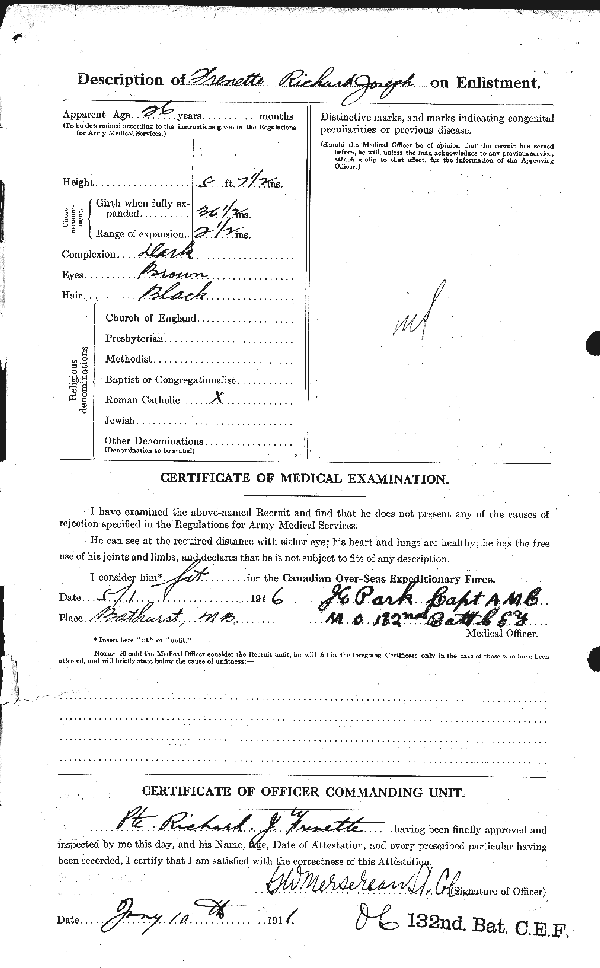 Description of Frenette Richard Joseph on Enlistment.
Apparent Age 26 years months
(To be determined according to the instructions given in the Regulations for Army Medical Services.)
Height ft. 7 1/2 ins.
Chest measurement
Girth when fully expanded 36 1/2 ins.
Range of expansion 2 1/2 ins.
Complexion Dark
Eyes Brown
Hair Black
Religious denominations
Church of England
Presbyterian
Methodist
Baptist or Congregationalist
Roman Catholic X
Jewish
Other Denominations
(Denomination to be stated)
Distinctive marks, and marks indicating congenital
peculiarities or previous disease.
(Should the Medical Officer be of opinion that the recruit has served
before, he will, unless the man acknowledges to any previous service,
attach a slip to that effect, for the information of the Approving
Officer.)
CERTIFICATE OF MEDICAL EXAMINATION.
I have examined the above-named Recruit and find that he does not present any of the causes of
rejection specified in the Regulations for Army Medical Services.
He can see at the required distance with either eye; his heart and lungs are healthy; he has the free
use of his joints and limbs, and declares that he is not subject to fits of any description.
I consider him* fit for the Canadian Over-Seas Expeditionary Force.
Date 5/1 1916 Park Capt A.M.C
Place Bathurst, N.B. M.O. 132nd Batt C E F
Medical Officer.
*Insert here "fit" or "unfit."
Note.—Should the Medical Officer consider the Recruit unfit, he will fill in the foregoing Certificate only in the case of those who have been
attested, and will briefly state below the cause of unfitness:—
CERTIFICATE OF OFFICER COMMANDING UNIT.
Pte. Richard J Frenette having been finally approved and
inspected by me this day, and his Name, Age, Date of Attestation, and every prescribed particular having
been recorded, I certify that I am satisfied with the correctness of this Attestation.
Mersereau Lt. Col (Signature of Officer)
Date Jany 10th 1916. OC 132nd. Bat. C.E.F.